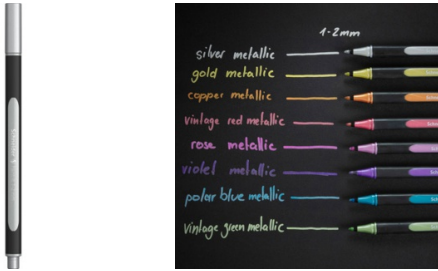 1-2mm
silver metallic
gold metallic
copper metallic
vintage red metallic
rose metallic
violet metallic
polar blue metallic
vintage green metallic